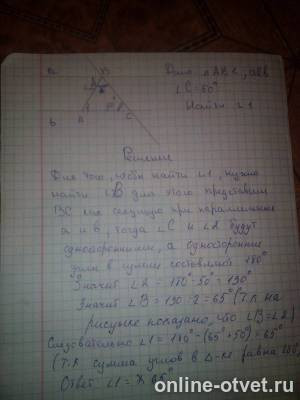 a B Дано: △ABC, a∥b
∠C=50°
Найти: ∠1
A C
b
Решение
Для того, чтобы найти ∠1, нужно
найти ∠B для этого представим
BC как секущую при параллельных
a и b, тогда ∠C и ∠2 будут
односторонними, а односторонние
углы в сумме составляют 180°
Значит ∠2 = 180°-50° = 130°
Значит ∠B = 130:2 = 65° (т.к на
рисунке показано, что ∠B=∠2)
Следовательно ∠1 = 180°-(65°+50°) = 65°
(т.к сумма углов в △-ке равна 180°)
Ответ: ∠1 = 65°
online-otvet.ru